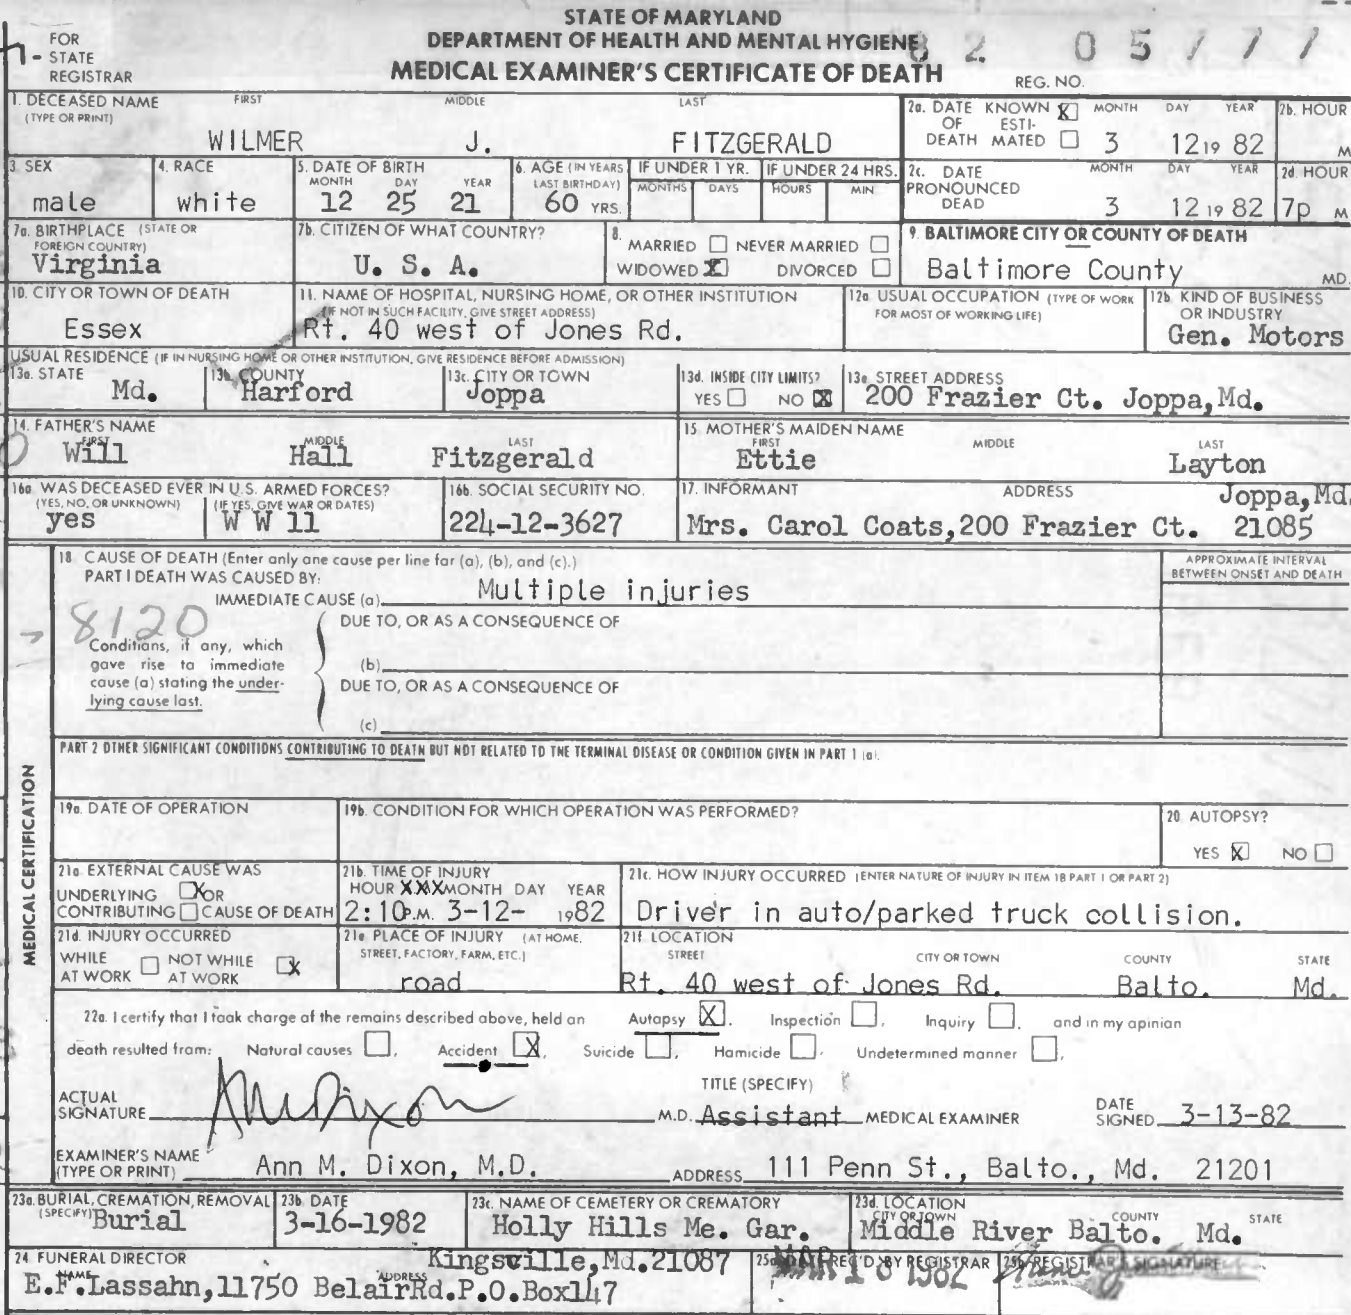 STATE OF MARYLAND
DEPARTMENT OF HEALTH AND MENTAL HYGIENE
MEDICAL EXAMINER'S CERTIFICATE OF DEATH
FOR STATE REGISTRAR
REG. NO. 82 05777
1. DECEASED NAME (TYPE OR PRINT) FIRST MIDDLE LAST
WILMER J. FITZGERALD
2a. DATE OF DEATH KNOWN X ESTIMATED MONTH DAY YEAR
3 12 19 82
2b. HOUR M
3. SEX
male
4. RACE
white
5. DATE OF BIRTH MONTH DAY YEAR
12 25 21
6. AGE (IN YEARS LAST BIRTHDAY)
60 YRS.
IF UNDER 1 YR. MONTHS DAYS
IF UNDER 24 HRS. HOURS MIN
2c. DATE PRONOUNCED DEAD MONTH DAY YEAR
3 12 19 82
2d. HOUR
7p M
7a. BIRTHPLACE (STATE OR FOREIGN COUNTRY)
Virginia
7b. CITIZEN OF WHAT COUNTRY?
U. S. A.
8. MARRIED NEVER MARRIED
WIDOWED X DIVORCED
9. BALTIMORE CITY OR COUNTY OF DEATH
Baltimore County MD.
10. CITY OR TOWN OF DEATH
Essex
11. NAME OF HOSPITAL, NURSING HOME, OR OTHER INSTITUTION
(IF NOT IN SUCH FACILITY, GIVE STREET ADDRESS)
Rt. 40 west of Jones Rd.
12a. USUAL OCCUPATION (TYPE OF WORK FOR MOST OF WORKING LIFE)
12b. KIND OF BUSINESS OR INDUSTRY
Gen. Motors
USUAL RESIDENCE (IF IN NURSING HOME OR OTHER INSTITUTION, GIVE RESIDENCE BEFORE ADMISSION)
13a. STATE
Md.
13b. COUNTY
Harford
13c. CITY OR TOWN
Joppa
13d. INSIDE CITY LIMITS?
YES NO X
13e. STREET ADDRESS
200 Frazier Ct. Joppa,Md.
14. FATHER'S NAME FIRST MIDDLE LAST
Will Hall Fitzgerald
15. MOTHER'S MAIDEN NAME FIRST MIDDLE LAST
Ettie Layton
16a. WAS DECEASED EVER IN U.S. ARMED FORCES?
(YES, NO, OR UNKNOWN) (IF YES, GIVE WAR OR DATES)
yes W W 11
16b. SOCIAL SECURITY NO.
224-12-3627
17. INFORMANT ADDRESS Joppa,Md.
Mrs. Carol Coats,200 Frazier Ct. 21085
MEDICAL CERTIFICATION
18. CAUSE OF DEATH (Enter only one cause per line for (a), (b), and (c).)
PART I DEATH WAS CAUSED BY:
IMMEDIATE CAUSE (a) Multiple injuries
APPROXIMATE INTERVAL BETWEEN ONSET AND DEATH
8120
Conditions, if any, which gave rise to immediate cause (a) stating the underlying cause last.
DUE TO, OR AS A CONSEQUENCE OF
(b)
DUE TO, OR AS A CONSEQUENCE OF
(c)
PART 2 OTHER SIGNIFICANT CONDITIONS CONTRIBUTING TO DEATH BUT NOT RELATED TO THE TERMINAL DISEASE OR CONDITION GIVEN IN PART 1 (a).
19a. DATE OF OPERATION
19b. CONDITION FOR WHICH OPERATION WAS PERFORMED?
20. AUTOPSY?
YES X NO
21a. EXTERNAL CAUSE WAS
UNDERLYING X OR
CONTRIBUTING CAUSE OF DEATH
21b. TIME OF INJURY
HOUR XXX MONTH DAY YEAR
2:10 P.M. 3-12- 1982
21c. HOW INJURY OCCURRED (ENTER NATURE OF INJURY IN ITEM 18 PART 1 OR PART 2)
Driver in auto/parked truck collision.
21d. INJURY OCCURRED
WHILE AT WORK NOT WHILE AT WORK X
21e. PLACE OF INJURY (AT HOME, STREET, FACTORY, FARM, ETC.)
road
21f. LOCATION STREET CITY OR TOWN COUNTY STATE
Rt. 40 west of Jones Rd. Balto. Md.
22a. I certify that I took charge of the remains described above, held an Autopsy X, Inspection, Inquiry, and in my opinion
death resulted from: Natural causes, Accident X, Suicide, Homicide, Undetermined manner.
ACTUAL SIGNATURE AM Dixon M.D.
TITLE (SPECIFY)
Assistant MEDICAL EXAMINER
DATE SIGNED 3-13-82
EXAMINER'S NAME (TYPE OR PRINT) Ann M. Dixon, M.D.
ADDRESS 111 Penn St., Balto., Md. 21201
23a. BURIAL, CREMATION, REMOVAL (SPECIFY)
Burial
23b. DATE
3-16-1982
23c. NAME OF CEMETERY OR CREMATORY
Holly Hills Me. Gar.
23d. LOCATION CITY OR TOWN COUNTY STATE
Middle River Balto. Md.
24. FUNERAL DIRECTOR
NAME ADDRESS
Kingsville,Md.21087
E.F.Lassahn,11750 BelairRd.P.O.Box147
25a. DATE REC'D. BY REGISTRAR
25b. REGISTRAR'S SIGNATURE